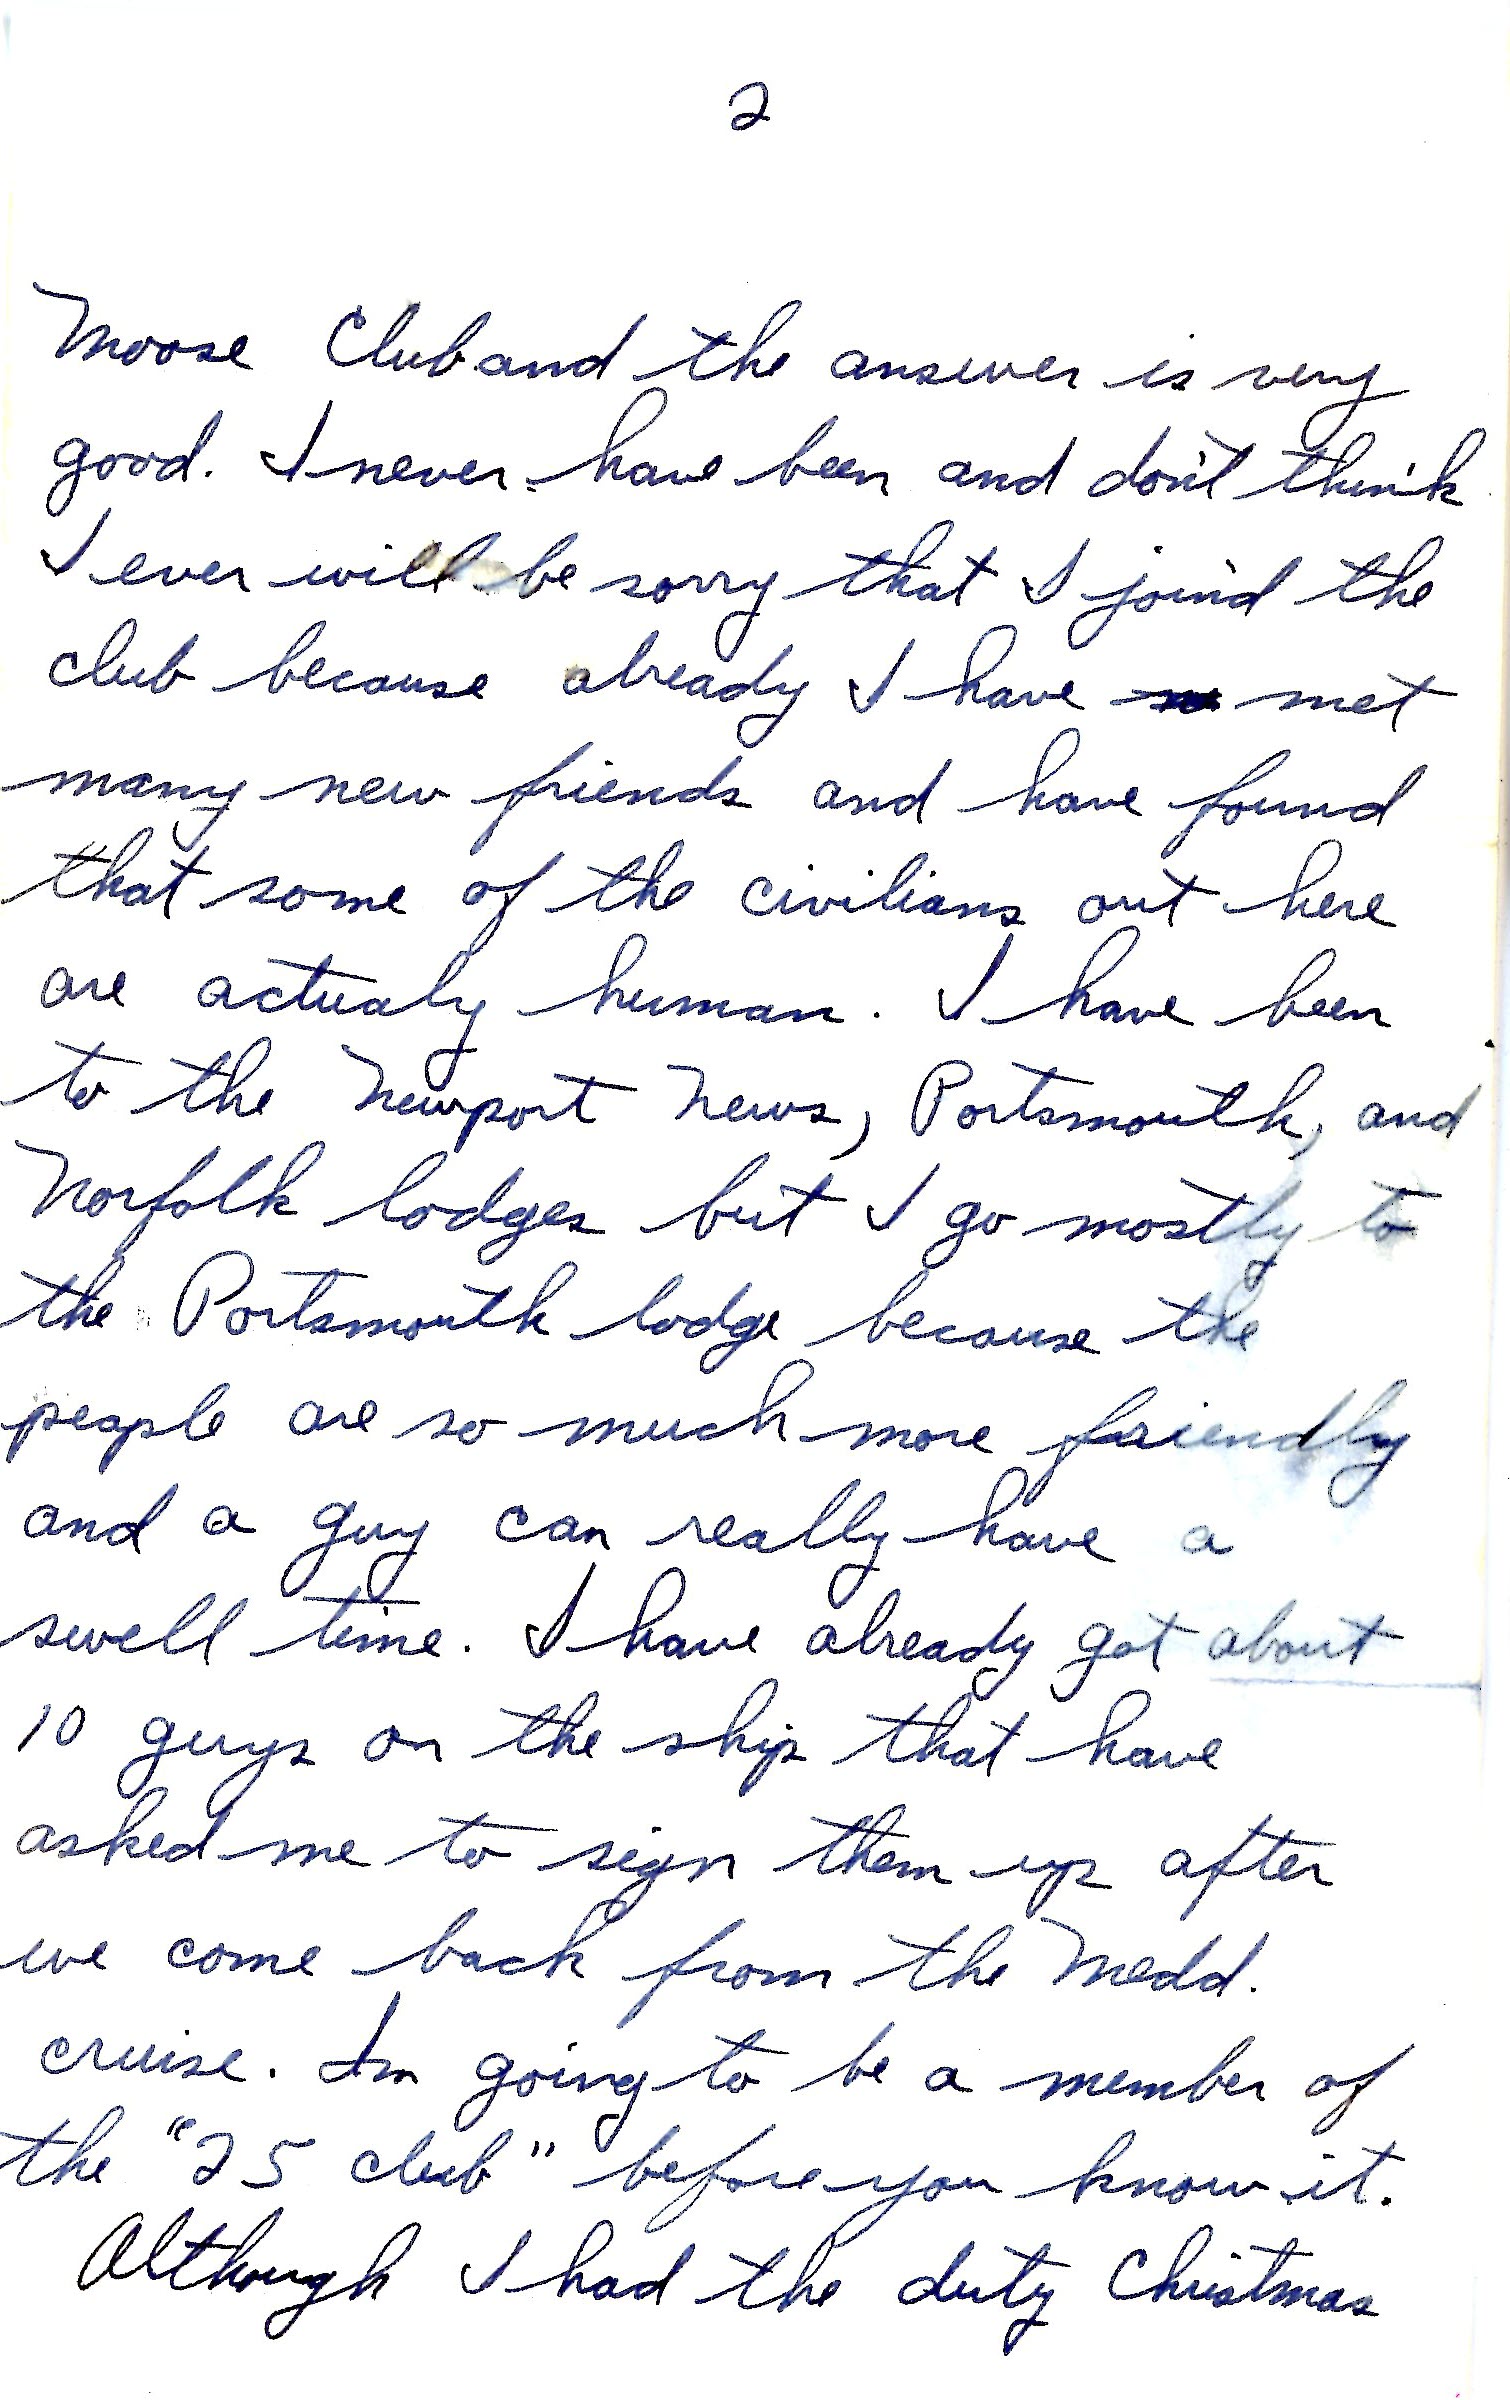 2
Moose Club and the answer is very
good. I never have been and don't think
I ever will be sorry that I join'd the
club because already I have met
many new friends and have found
that some of the civilians out here
are actualy human. I have been
to the Newport News, Portsmouth, and
Norfolk lodges but I go mostly to
the Portsmouth lodge because the
people are so much more friendly
and a guy can really have a
swell time. I have already got about
10 guys on the ship that have
asked me to sign them up after
we come back from the Medd.
cruise. Im going to be a member of
the "25 club" before you know it.
Although I had the duty Christmas